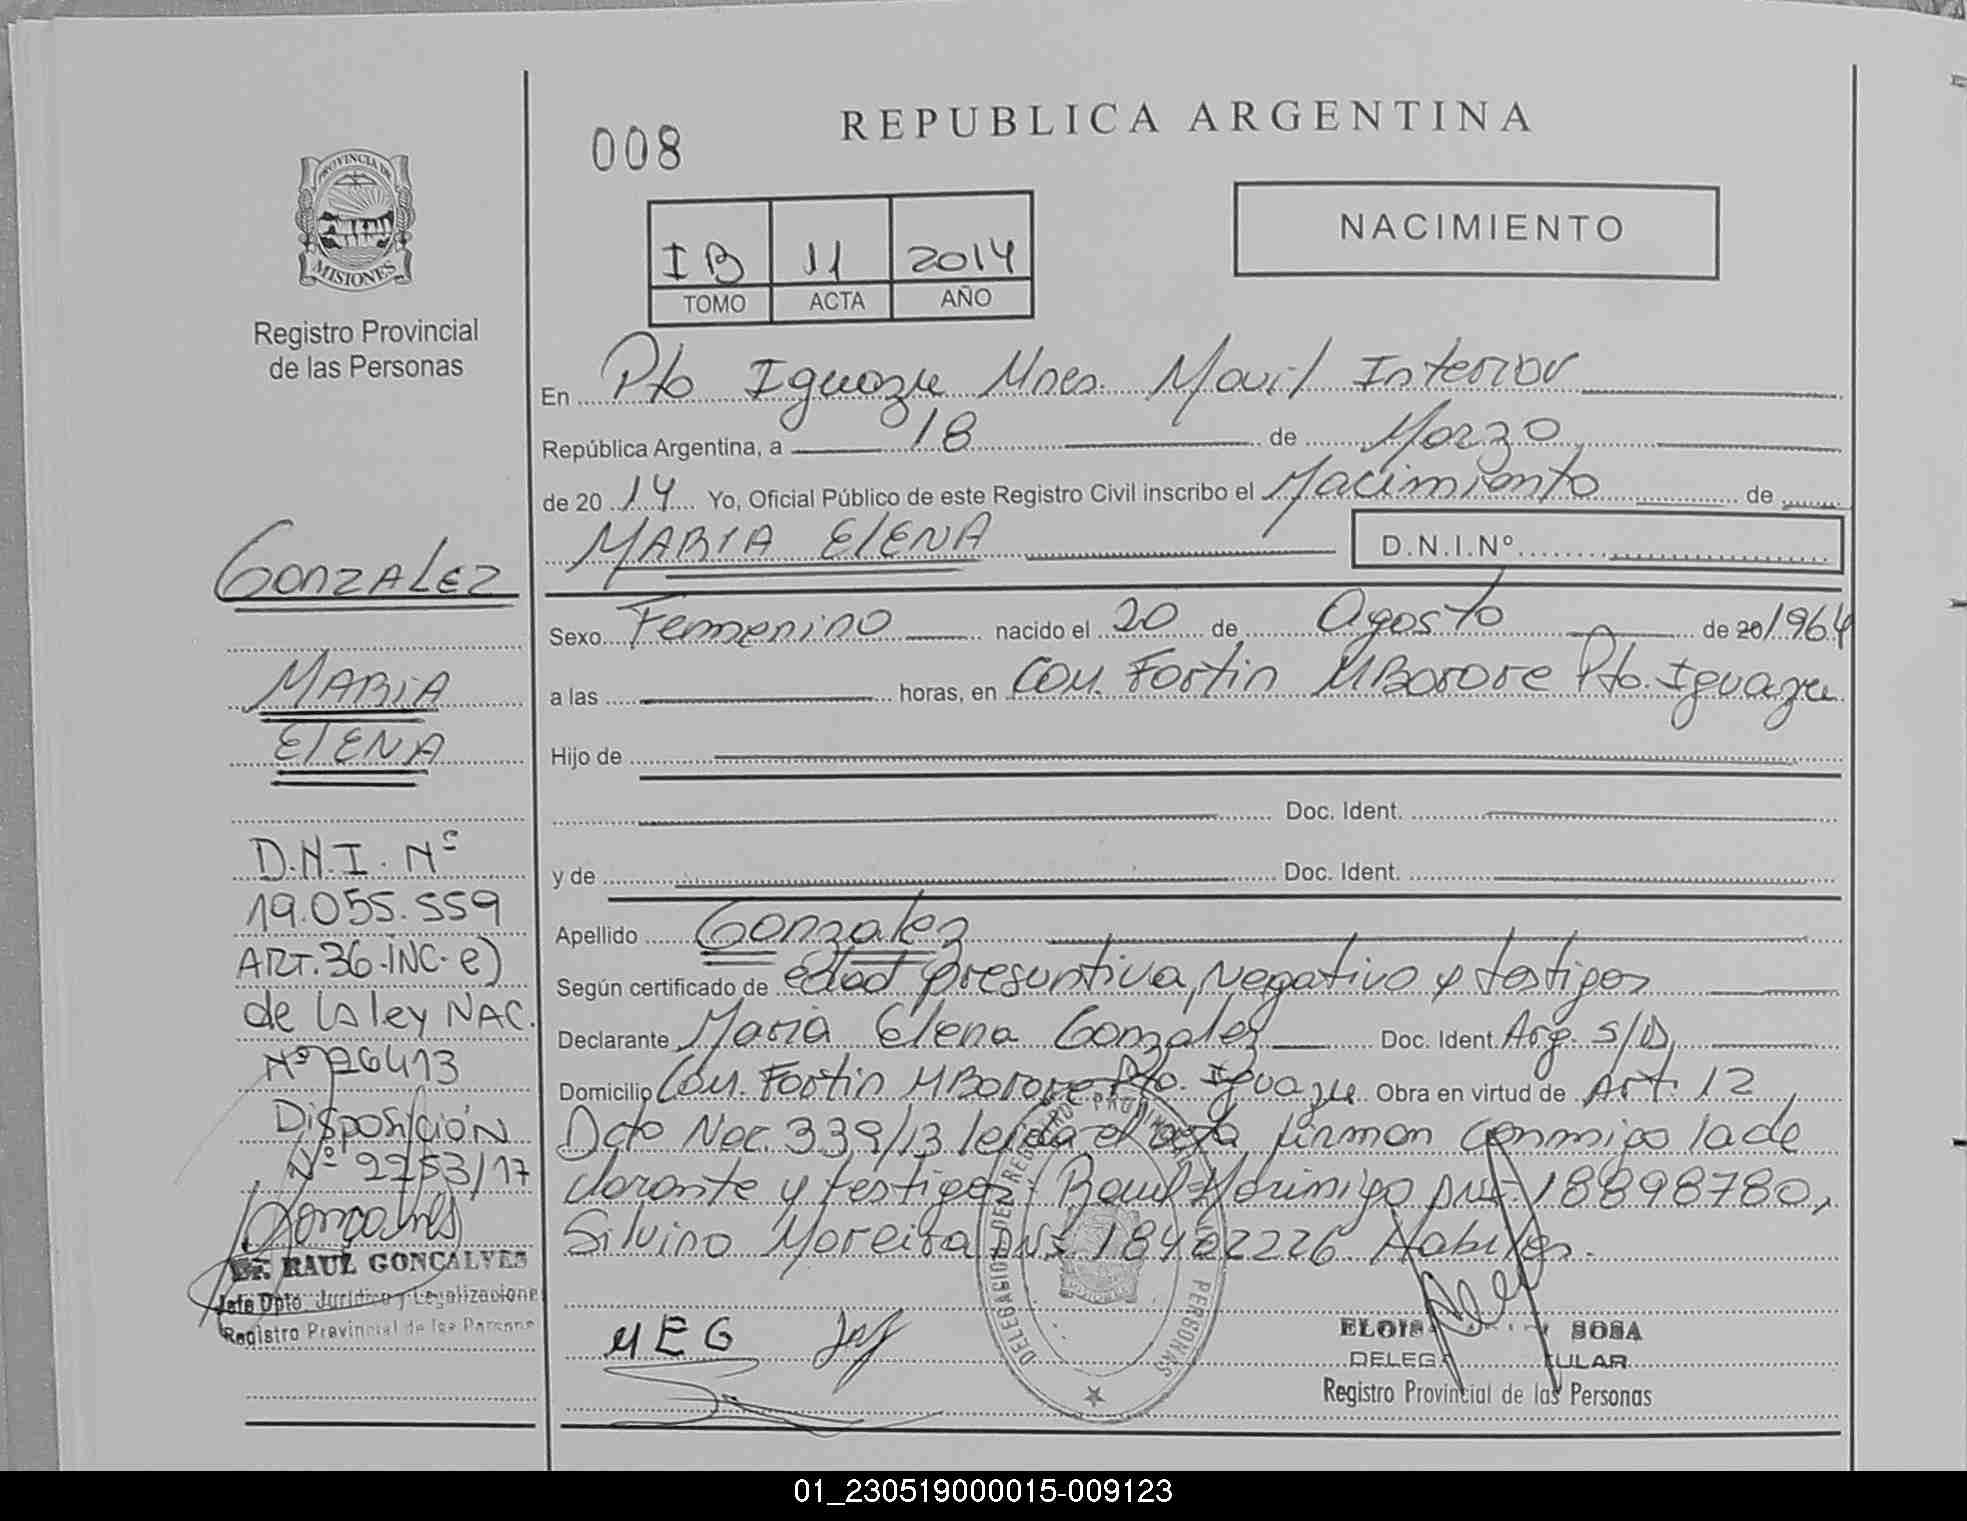 REPUBLICA ARGENTINA
008
PROVINCIA DE
MISIONES
Registro Provincial
de las Personas
NACIMIENTO
IB 11 2014
TOMO ACTA AÑO
En Pto Iguazu Mnes. Movil Interior
República Argentina, a 18 de Marzo
de 2014 Yo, Oficial Público de este Registro Civil inscribo el Nacimiento de
MARIA ELENA D.N.I.Nº
Sexo Femenino nacido el 20 de Agosto de 20 1964
a las horas, en Com. Fortin MBorore Pto. Iguazu
Hijo de
Doc. Ident.
y de Doc. Ident.
Apellido Gonzalez
Según certificado de edad presuntiva, Negativo y testigos
Declarante Maria Elena Gonzalez Doc. Ident. Arg. S/D
Domicilio Com. Fortin MBorore Pto. Iguazu Obra en virtud de Art. 12
Dcto Nac. 339/13 leida el acta firman conmigo la de
clarante y testigos Raul Morinigo DNI 18898780,
Silvino Moreira DNI 18402226 Habiles.
MEG
DELEGACION DEL REGISTRO PROVINCIAL PERSONAS
SOSA
Registro Provincial de las Personas
GONZALEZ
MARIA
ELENA
D.N.I. Nº
19.055.559
ART.36-INC-e)
de la ley NAC.
Nº 26413
Disposición
Nº 2253/17
Goncalves
Dr. RAUL GONCALVES
Jefe Dpto Juridico y Legalizacione
Registro Provincial de las Persona
01_230519000015-009123